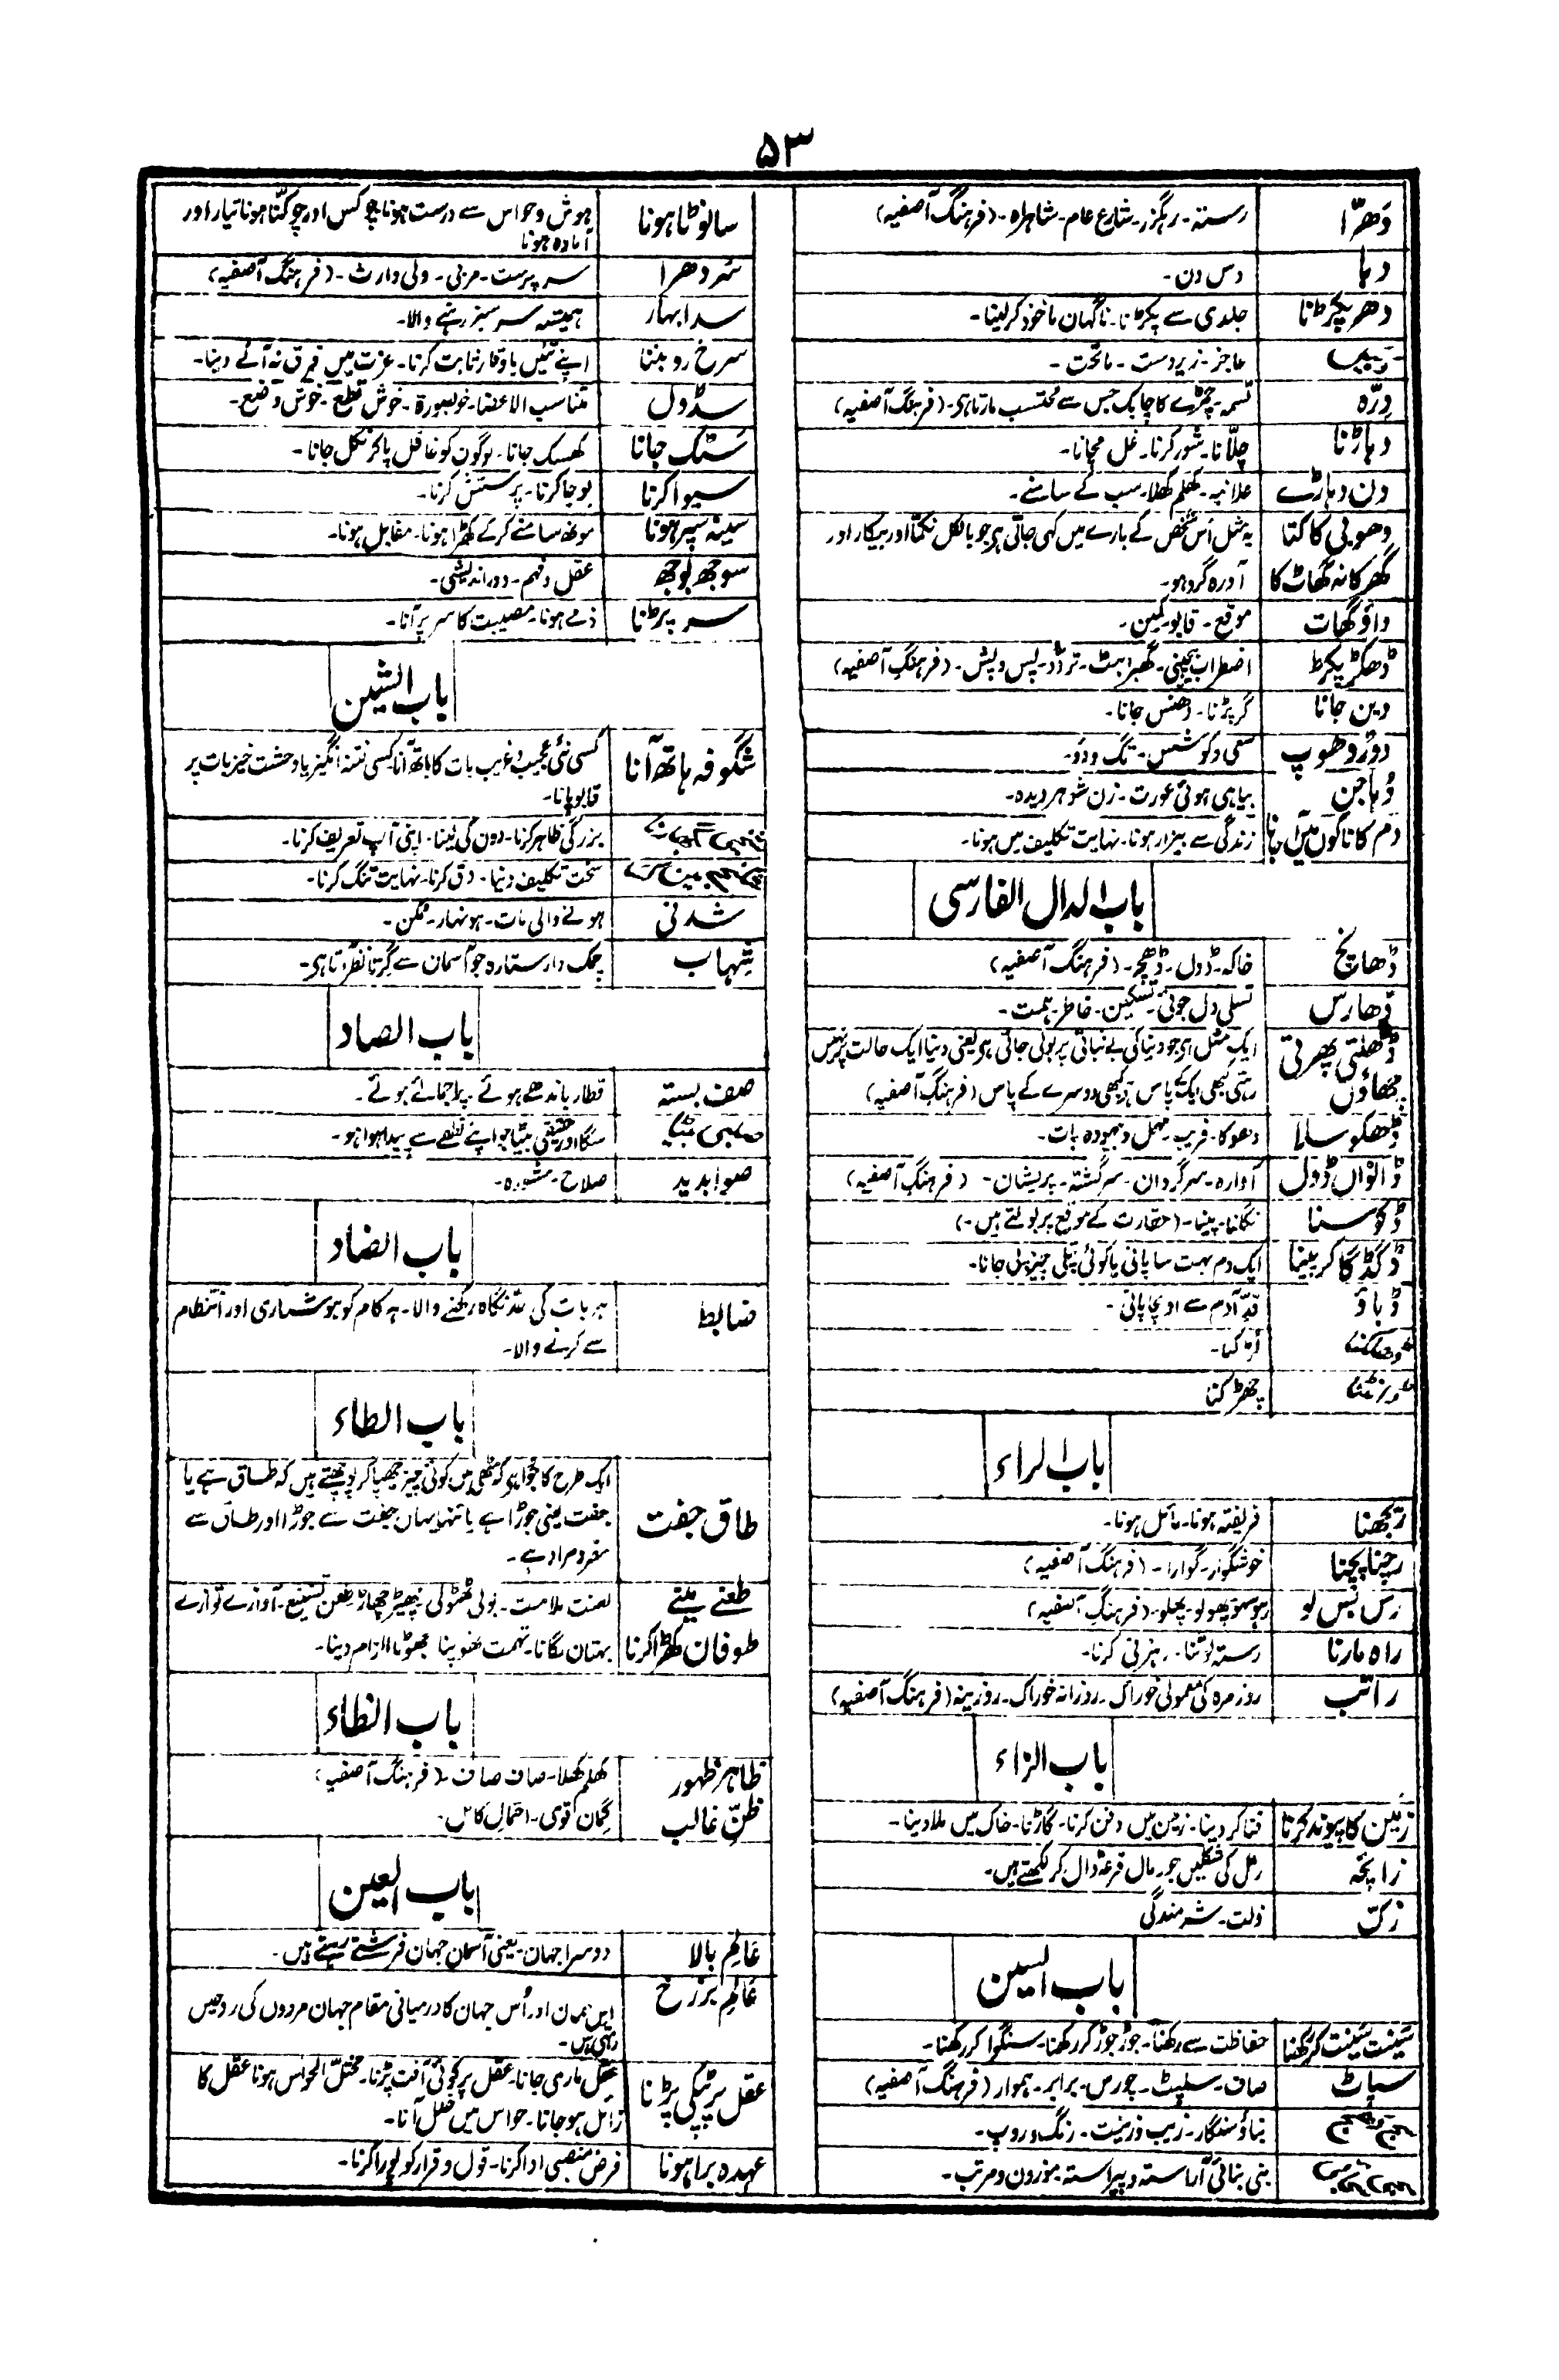 ۵۳
دَھرّا رستہ۔ رہگزر۔ شارع عام۔ شاہراہ۔ (فرہنگ آصفیہ)
دہا دس دن۔
دھر پکڑنا جلدی سے پکڑنا۔ ناگہان ماخوذ کرلینا۔
عاجز۔ زبردست۔ ماتحت۔
دِرّہ تسمہ۔ چمڑے کا چابک جس سے محتسب مارتا ہی۔ (فرہنگ آصفیہ)
دہاڑنا چلّانا۔ شور کرنا۔ غل مچانا۔
دن دہاڑے علانیہ۔ کھلم کھلا۔ سب کے سامنے۔
دھوبی کا کتا یہ مثل اُس شخص کے بارے میں کہی جاتی ہی جو بالکل نکمّا اور بیکار اور
گھر کا نہ گھاٹ کا آوارہ گرد ہو۔
داؤ گھات موقع۔ قابو۔ کمین۔
ڈھکڑ پکڑ اضطراب۔ بیچینی۔ گھبراہٹ۔ تردّد۔ پس و پیش۔ (فرہنگ آصفیہ)
دین جانا گر پڑنا۔ دھنس جانا۔
دوڑ دھوپ سعی و کوشش۔ تگ و دَو۔
دُہاجن بیاہی ہوئی عورت۔ زن شوہر دیدہ۔
دم کا ناکوں میں آ جانا زندگی سے بیزار ہونا۔ نہایت تکلیف میں ہونا۔
باب الدال الفارسی
ڈھانچ خاکہ۔ ڈول۔ ڈھچر۔ (فرہنگ آصفیہ)
ڈھارس تسلی دل جوئی۔ تسکین۔ خاطر۔ ہمت۔
ڈھلتی پھرتی ایک مثل ہی جو دنیا کی بے ثباتی پر بولی جاتی ہی یعنی دنیا ایک حالت پر نہیں
چھاؤں رہتی کبھی ایک کے پاس ہی کبھی دوسرے کے پاس (فرہنگ آصفیہ)
ڈھکوسلا دھوکا۔ فریب۔ مہمل و بیہودہ بات۔
ڈانواں ڈول آوارہ۔ سرگردان۔ سرگشتہ۔ پریشان۔ (فرہنگ آصفیہ)
ڈکوسنا نگلنا۔ پینا۔ (حقارت کے موقع پر بولتے ہیں۔)
ڈگڈگا کر پینا ایک دم بہت سا پانی یا کوئی پتلی چیز پی جانا۔
ڈباؤ قدِّ آدم سے اونچا پانی۔
چھڑکنا
باب الراء
ریجھنا فریفتہ ہونا۔ مائل ہونا۔
رچنا پچنا خوشگوار۔ گوارا۔ (فرہنگ آصفیہ)
رس بس لو پھولو۔ پھلو۔ (فرہنگ آصفیہ)
راہ مارنا رستہ لوٹنا۔ رہزنی کرنا۔
راتب روزمرہ کی معمولی خوراک۔ روزانہ خوراک۔ روزینہ (فرہنگ آصفیہ)
باب الزاء
زمین کا پیوند کرنا فنا کر دینا۔ زمین میں دفن کرنا۔ گاڑنا۔ خاک میں ملا دینا۔
زائچہ رمل کی شکلیں جو رمال قرعہ ڈال کر لکھتے ہیں۔
زکّ ذلت۔ شرمندگی
باب السین
سَینت سَینت کر رکھنا حفاظت سے رکھنا۔ جوڑ جوڑ کر رکھنا۔ سنگوا کر رکھنا۔
سپاٹ صاف۔ سلیٹ۔ چورس۔ برابر۔ ہموار (فرہنگ آصفیہ)
سج دھج بناؤ سنگار۔ زیب و زینت۔ رنگ و روپ۔
بنی بنائی آراستہ و پیراستہ۔ موزون و مرتب۔
سانوٹا ہونا ہوش و حواس سے درست ہونا۔ چوکس اور چوکنّا ہونا تیار اور
آمادہ ہونا
سَر دھرا سرپرست۔ مربی۔ ولی وارث۔ (فرہنگ آصفیہ)
سدا بہار ہمیشہ سرسبز رہنے والا۔
سرخ رو بننا اپنے تئیں باوقار ثابت کرنا۔ عزت میں فرق نہ آنے دینا۔
سڈول متناسب الاعضا۔ خوبصورۃ۔ خوش قطع۔ خوش وضع۔
سَٹک جانا کھسک جانا۔ لوگوں کو غافل پاکر نکل جانا۔
سیوا کرنا پوجا کرنا۔ پرستش کرنا۔
سینہ سپر ہونا مونھ سامنے کرکے کھڑا ہونا۔ مقابل ہونا۔
سوجھ بوجھ عقل و فہم۔ دور اندیشی۔
سر پڑنا ذمے ہونا۔ مصیبت کا سر پر آنا۔
باب الشین
شگوفہ ہاتھ آنا کسی نئی عجیب و غریب بات کا ہاتھ آنا کسی فتنہ انگیز یا وحشت خیز بات پر
قابو پانا۔
بزرگی ظاہر کرنا۔ دون کی لینا۔ اپنی آپ تعریف کرنا۔
سخت تکلیف دینا۔ دق کرنا۔ نہایت تنگ کرنا۔
شدنی ہونے والی بات۔ ہونہار۔ ممکن۔
شہاب چمک دار ستارہ جو آسمان سے گرتا نظر آتا ہی۔
باب الصاد
صف بستہ قطار باندھے ہوئے۔ پرا جمائے ہوئے۔
صلبی بیٹا سگا اور حقیقی بیٹا جو اپنے نطفے سے پیدا ہوا ہو۔
صوابدید صلاح۔ مشورہ۔
باب الضاد
ضابط ہر بات کی تہ نگاہ رکھنے والا۔ ہر کام کو ہوشیاری اور انتظام
سے کرنے والا۔
باب الطاء
ایک طرح کا جوا ہی کہ مٹھی میں کوئی چیز چھپا کر پوچھتے ہیں کہ طاق ہے یا
طاق جفت جفت یعنی جوڑا ہے یا تنہا یہاں جفت سے جوڑا اور طاق سے
مفرد مراد ہے۔
طعنے مینے لعنت ملامت۔ بولی ٹھٹھولی۔ چھیڑ چھاڑ طعن تشنیع۔ آوازے توازے
طوفان کھڑا کرنا بہتان لگانا۔ تہمت تھوپنا جھوٹا الزام دینا۔
باب الظاء
ظاہر ظہور کھلم کھلا۔ صاف صاف۔ (فرہنگ آصفیہ)
ظنّ غالب گمان قوی۔ احتمال کامل۔
باب العین
عالمِ بالا دوسرا جہان۔ یعنی آسمان جہان فرشتے رہتے ہیں۔
عالمِ برزخ اس جہان اور اُس جہان کا درمیانی مقام جہان مردوں کی روحیں
رہتی ہیں۔
عقل پر ٹپکی پڑنا عقل ماری جانا۔ عقل پر کوئی آفت پڑنا۔ مختل الحواس ہونا عقل کا
زائل ہو جانا۔ حواس میں خلل آنا۔
عہدہ برا ہونا فرض منصبی ادا کرنا۔ قول و قرار کو پورا کرنا۔